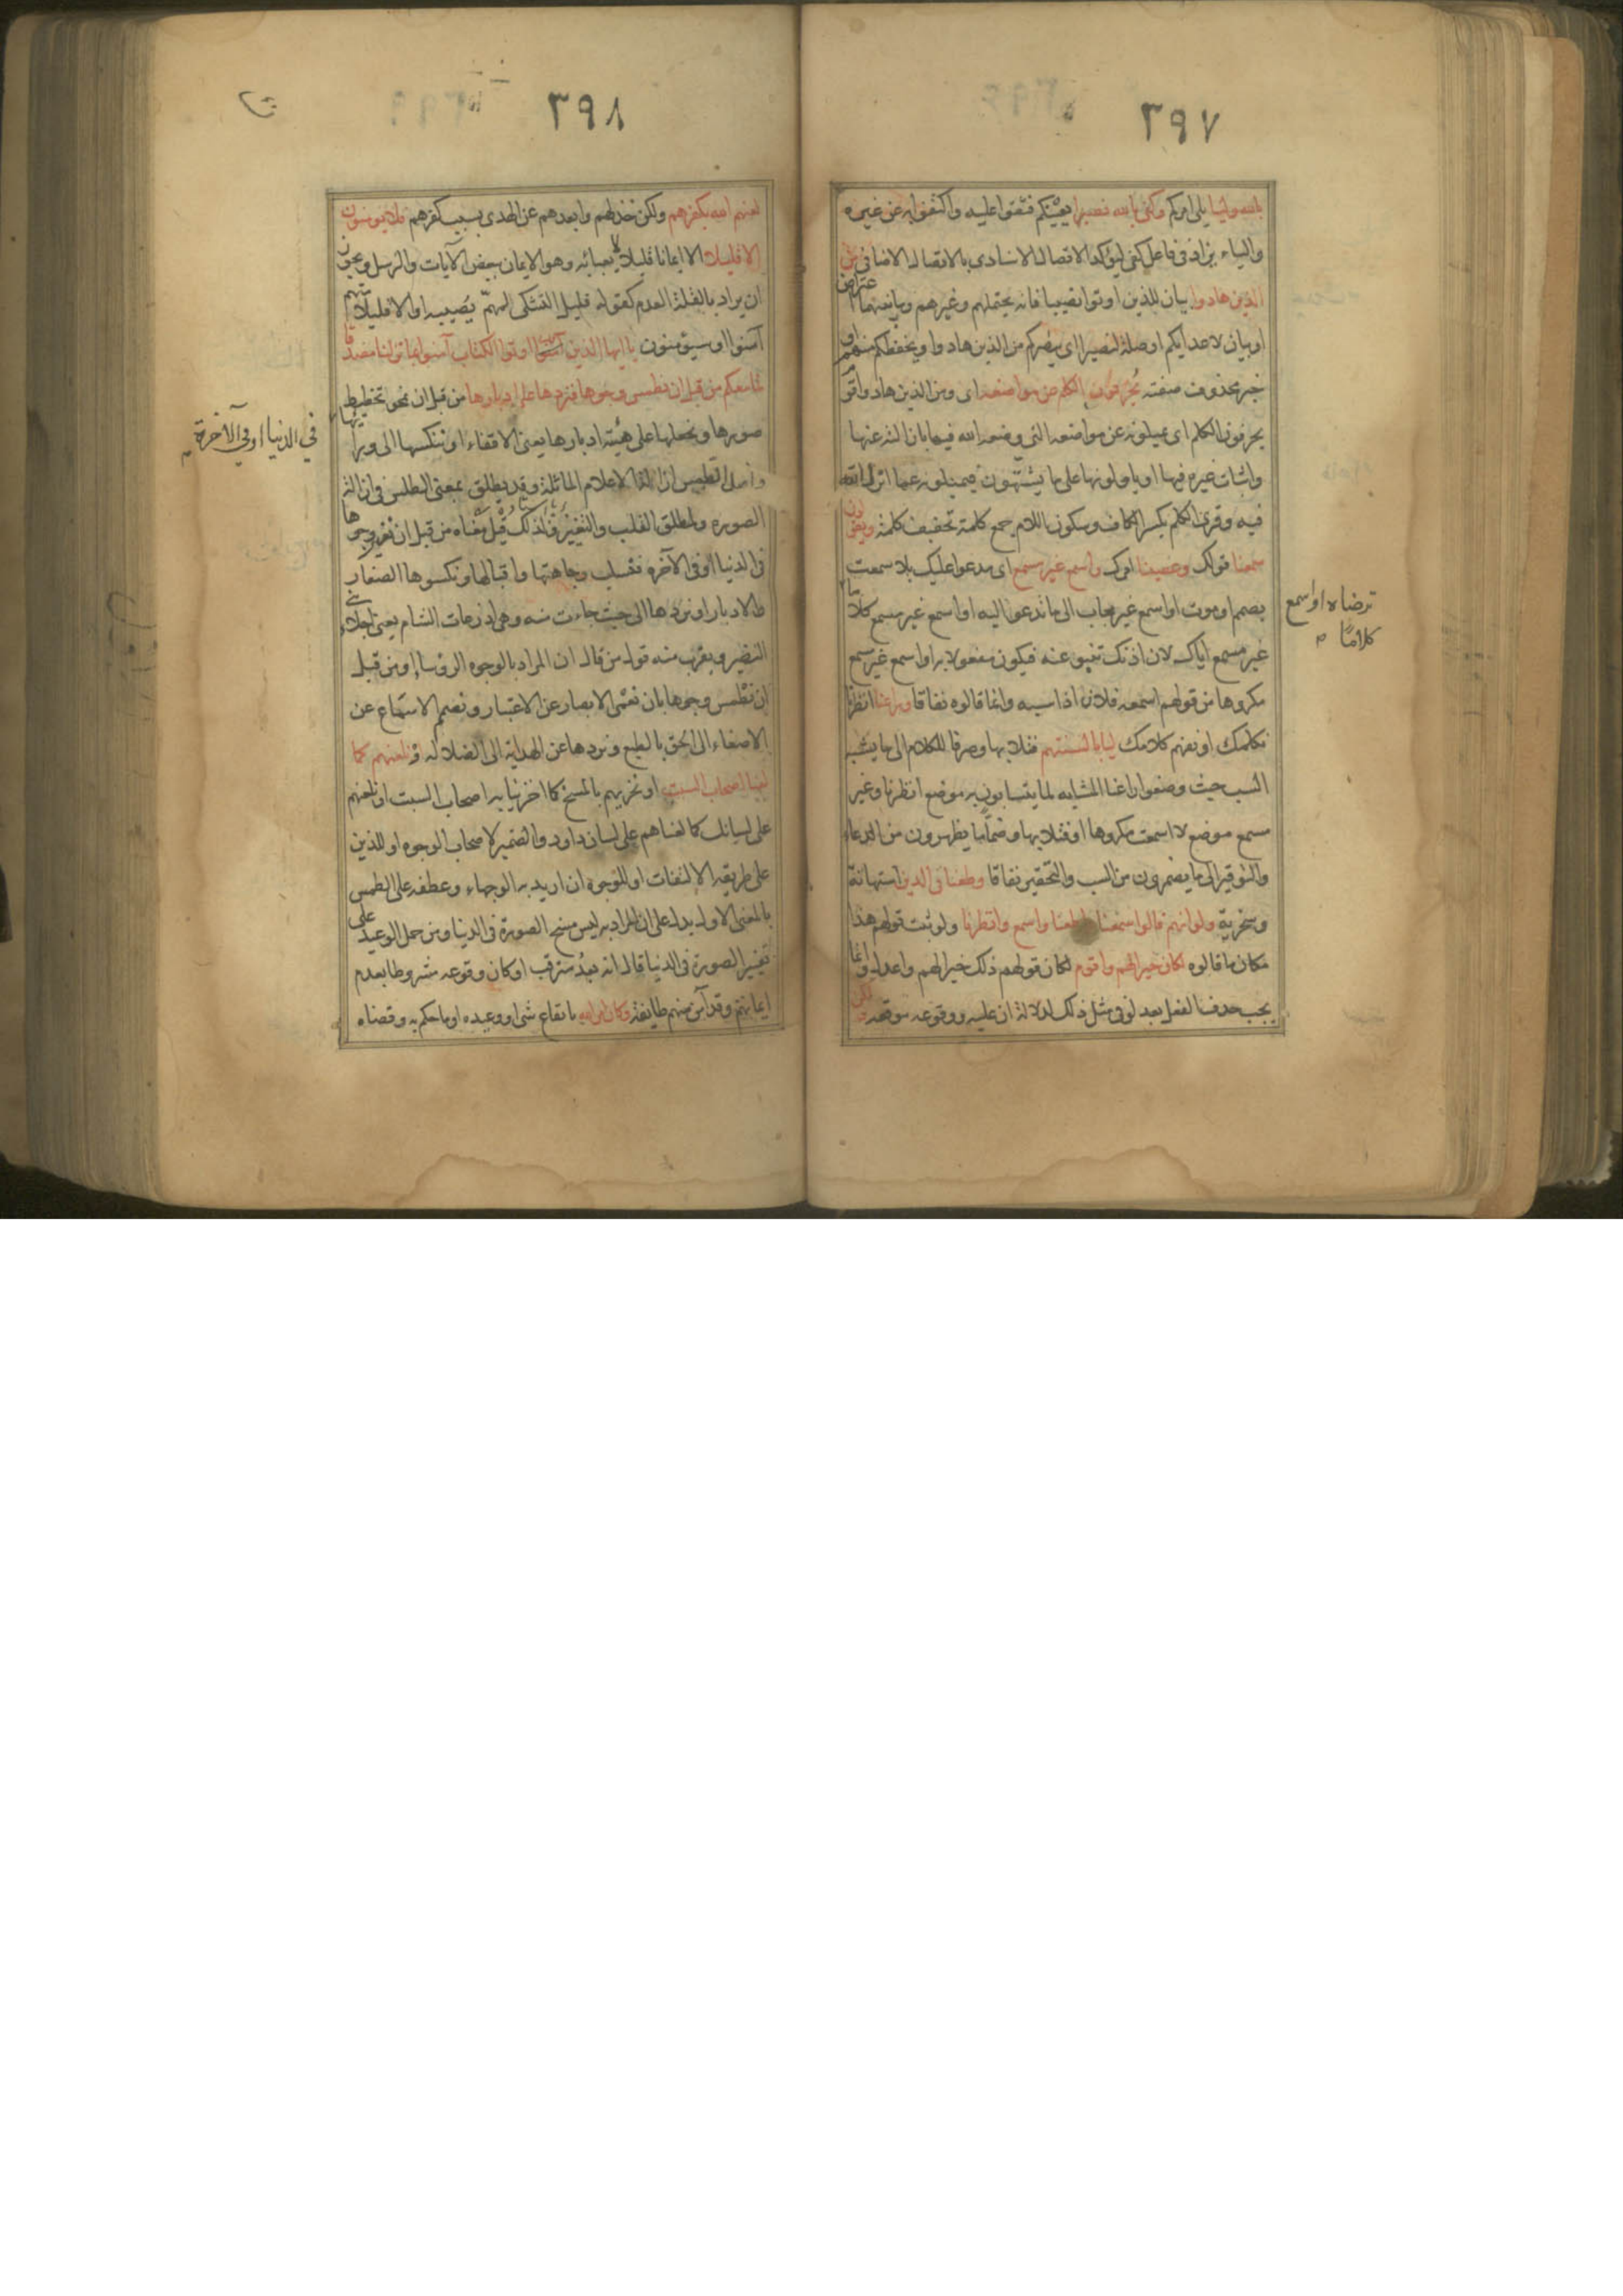 ٣٩٧
بالله وليا يلى امركم وكفى بالله نصيرا يعينكم فثقوا عليه واكتفوا به عن غيره
والباء يزاد فى فاعل كفى ليؤكد الاتصال الاسنادى بالاتصال الاضافى من
الذين هادوا بيان للذين اوتوا نصيبا فانه يحتملهم وغيرهم وما بينهما اعتراض
او بيان لاعدائكم او صلة لنصيرا اى ينصركم من الذين هادوا ويحفظكم منهم او
خبر محذوف صفته يحرفون الكلم عن مواضعه اى ومن الذين هادوا قوم
يحرفون الكلم اى يميلونه عن مواضعه التى وضعه الله فيها بازالته عنها
واثبات غيره فيها او ياولونها على ما يشتهون فيميلونه عما انزل الله
فيه وقرئ الكلم بكسر الكاف وسكون اللام جمع كلمة تخفيف كلمة ويقولون
سمعنا قولك وعصينا امرك واسمع غير مسمع اى مدعوا عليك بلا سمعت
بصمم او موت او اسمع غير مجاب الى ما تدعوا اليه او اسمع غير مسمع كلاما
ترضاه او اسمع
كلاما
غير مسمع اياك لان اذنك تنبو عنه فيكون مفعولا به او اسمع غير مسمع
مكروها من قولهم اسمعه فلان اذا سبه وانما قالوه نفاقا وراعنا انظرنا
نكلمك او نفهم كلامك ليا بالسنتهم فتلا بها وصرفا للكلام الى ما يشبه
السب حيث وضعوا راعنا المشابه لما يتسابون به موضع انظرنا وغير
مسمع موضع لا اسمعت مكروها او فتلا بها وضما ما يظهرون من الدعاء
والتوقير الى ما يضمرون من السب والتحقير نفاقا وطعنا فى الدين استهانة
وسخرية ولو انهم قالوا سمعنا واطعنا واسمع وانظرنا ولو ثبت قولهم هذا
مكان ما قالوه لكان خيرا لهم واقوم لكان قولهم ذلك خيرا لهم واعدل وانما
يجب حذف الفعل بعد لو فى مثل ذلك لدلالة ان عليه ووقوعه موقعه ولكن
٣٩٨
لعنهم الله بكفرهم ولكن خذلهم وابعدهم عن الهدى بسبب كفرهم فلا يومنون
الا قليلا الا ايمانا قليلا لا يعبأ به وهو الايمان ببعض الآيات والرسل ويجوز
ان يراد بالقلة العدم كقوله قليل التشكى للمهم يصيبه او الا قليلا منهم
آمنوا او سيؤمنون يا ايها الذين اوتوا الكتاب آمنوا بما نزلنا مصدقا
لما معكم من قبل ان نطمس وجوها فنردها على ادبارها من قبل ان نمحو تخطيط
صورها ونجعلها على هيئة ادبارها يعنى الاقفاء او ننكسها الى ورائها
فى الدنيا او فى الآخرة
واصل الطمس ازالة الاعلام الماثلة وقد يطلق بمعنى الطلس فى ازالة
الصورة ولمطلق القلب والتغيير ولذلك قيل معناه من قبل ان نغير وجوها
فى الدنيا او فى الآخره فنسلب وجاهتها واقبالها ونكسوها الصغار
والادبار او نردها الى حيث جاءت منه وهى اذرعات الشام يعنى اجلاء بنى
النضير ويقرب منه قول من قال ان المراد بالوجوه الرؤسا او من قبل
ان نطمس وجوها بان نعمى الابصار عن الاعتبار ونصم الاسماع عن
الاصغاء الى الحق بالطبع ونردها عن الهداية الى الضلالة او نلعنهم كما
لعنا اصحاب السبت او نخزيهم بالمسخ كما اخزينا به اصحاب السبت او نلعنهم
على لسانك كما لعناهم على لسان داود والضمير لاصحاب الوجوه او للذين
على طريقة الالتفات او للوجوه ان اريد به الوجهاء وعطفه على الطمس
بالمعنى الاول يدل على ان المراد به ليس مسخ الصورة فى الدنيا ومن حمل الوعيد على
تغيير الصورة فى الدنيا قال انه بعد مترقب او كان وقوعه مشروطا بعدم
ايمانهم وقد آمن منهم طايفة وكان امر الله بايقاع شئ او وعيده او ما حكم به وقضاه